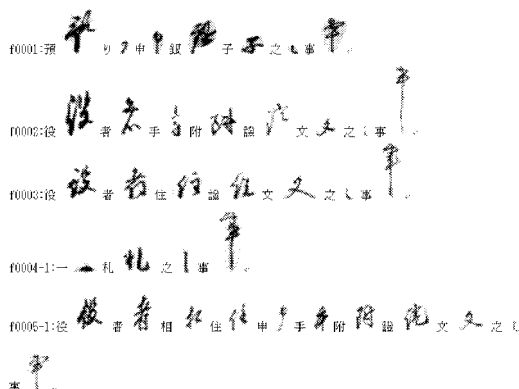 f0001:預り申銀子之事。
f0002:役者手附證文之事。
f0003:役者住證文之事。
f0004-1:一札之事。
f0005-1:役者相住申手附證文之
事。